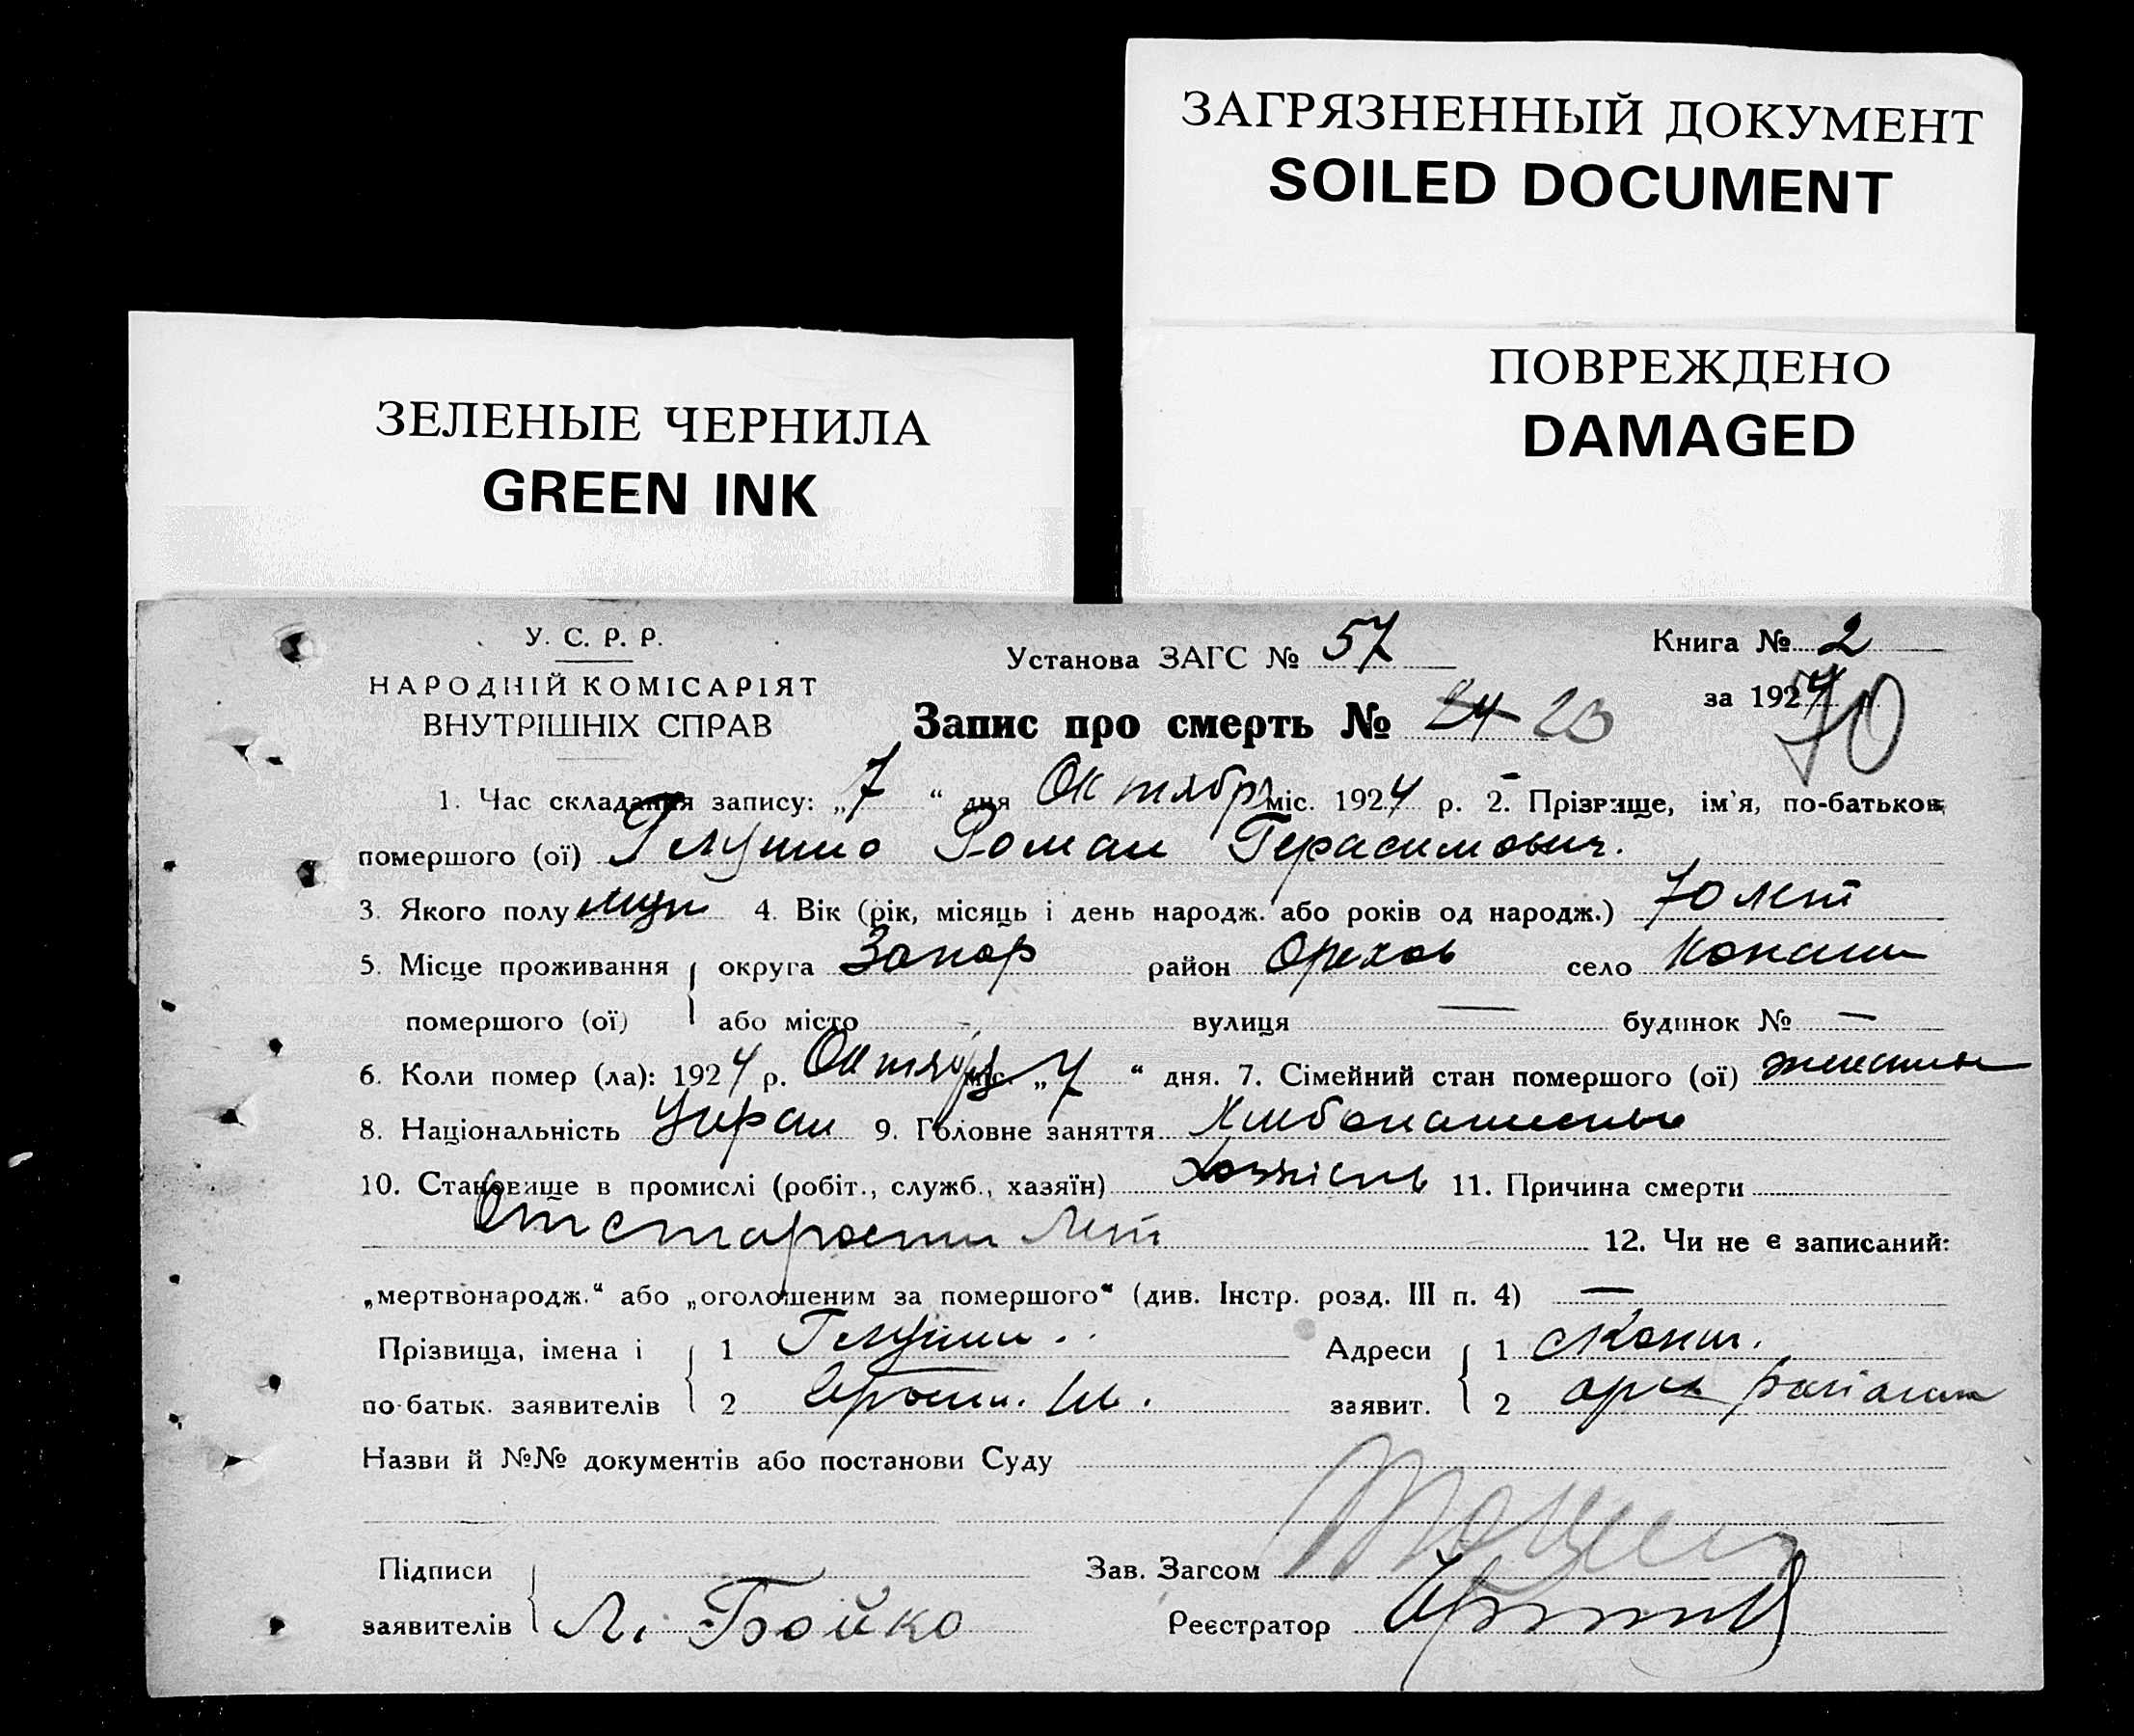 ЗАГРЯЗНЕННЫЙ ДОКУМЕНТ
SOILED DOCUMENT
ПОВРЕЖДЕНО
DAMAGED
ЗЕЛЕНЫЕ ЧЕРНИЛА
GREEN INK
У. С. Р. Р.
НАРОДНІЙ КОМІСАРІЯТ
ВНУТРІШНІХ СПРАВ
Установа ЗАГС № 57
Книга № 2
за 1924 р.
70
Запис про смерть № 24 23
1. Час складання запису: „7“ дня Октября міс. 1924 р. 2. Прізвище, ім'я, по-батькові
помершого (ої) Глушко Роман Герасимович.
3. Якого полу муж 4. Вік (рік, місяць і день народж. або років од народж.) 70 лет
5. Місце проживання округа Запор район Орехов село
помершого (ої) або місто - вулиця — будинок № —
6. Коли помер (ла): 1924 р. Октября міс. „7“ дня. 7. Сімейний стан помершого (ої)
8. Національність Украи 9. Головне заняття
10. Становище в промислі (робіт., служб., хазяїн) 11. Причина смерти
От старости лет 12. Чи не є записаний:
„мертвонародж.“ або „оголошеним за помершого“ (див. Інстр. розд. III п. 4) —
Прізвища, імена і 1 Адреси 1
по-батьк. заявителів 2 заявит. 2
Назви й №№ документів або постанови Суду
Підписи Зав. Загсом
заявителів Л. Бойко Реєстратор